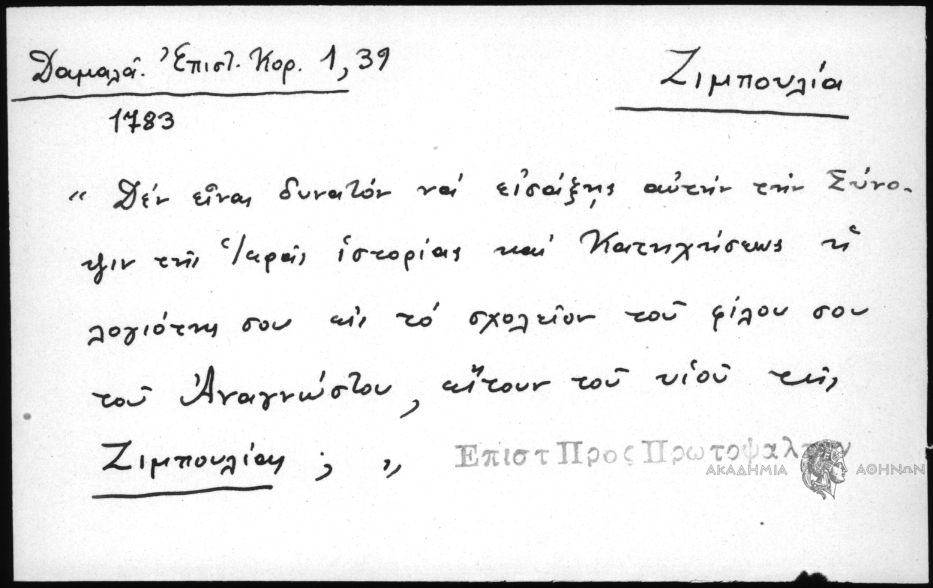 Δαμαλᾶ. Ἐπιστ. Κορ. 1, 39
Ζιμπουλία
1783
" Δέν εἶναι δυνατόν νά εἰσάξῃς αὐτήν τήν Σύνο-
ψιν τῆς Ἱερᾶς ἱστορίας καί Κατηχήσεως ἡ
λογιότης σου εἰς τό σχολεῖον τοῦ φίλου σου
τοῦ Ἀναγνώστου, ἤτουν τοῦ υἱοῦ τῆς
Ζιμπουλίας ; „ Επιστ Προς Πρωτοψαλτην
ΑΚΑΔΗΜΙΑ ΑΘΗΝΩΝ